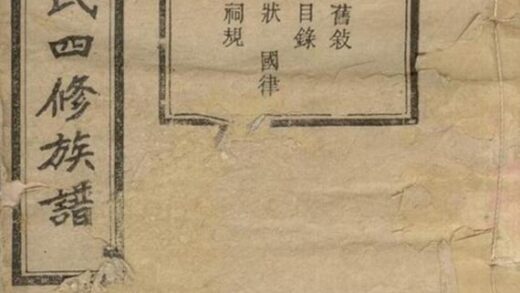 舊敘
目錄
狀 國律
祠規
氏四修族譜